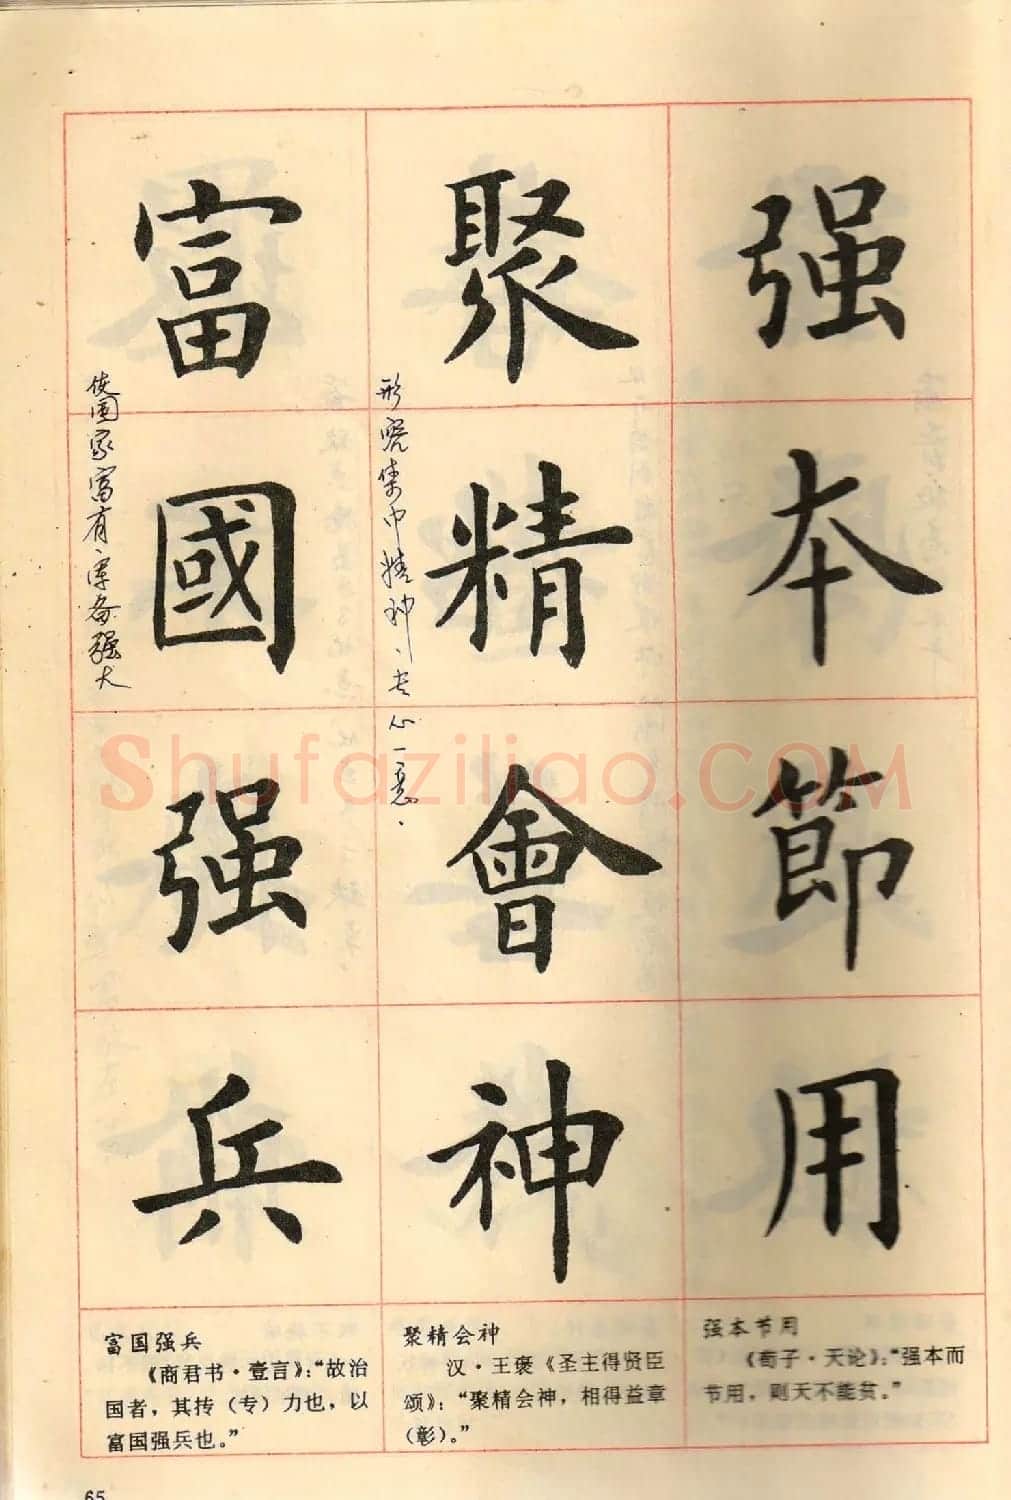 强本節用
聚精會神
富國强兵
形容集中精神、专心一意.
使国家富有、军备强大
Shufaziliao.COM
强本节用
《荀子·天论》:“强本而
节用,则天不能贫。”
聚精会神
汉·王褒《圣主得贤臣
颂》:“聚精会神,相得益章
(彰)。”
富国强兵
《商君书·壹言》:“故治
国者,其抟(专)力也,以
富国强兵也。”
65